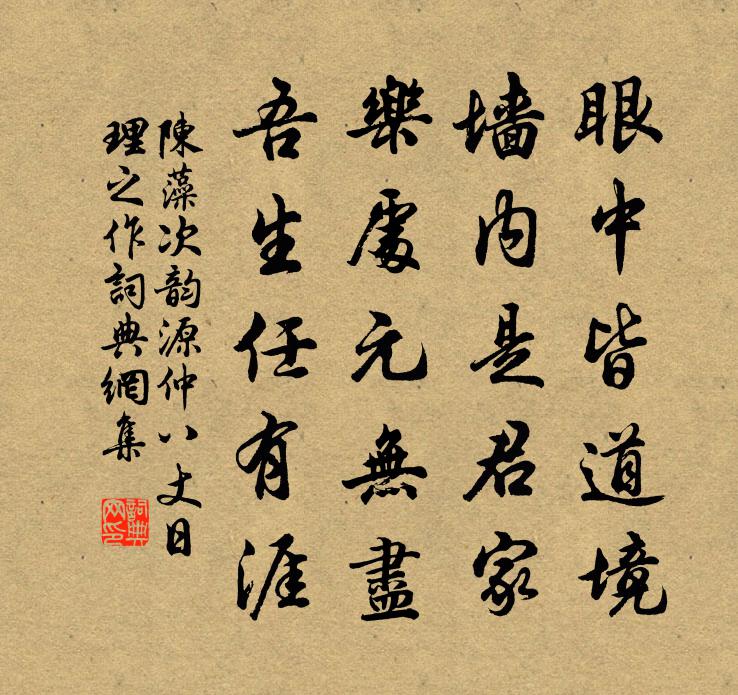 眼中皆道境
墙内是君家
樂處元無盡
吾生任有涯
陳藻次韵源仲八丈日
理之作詞典網集
詞典网印